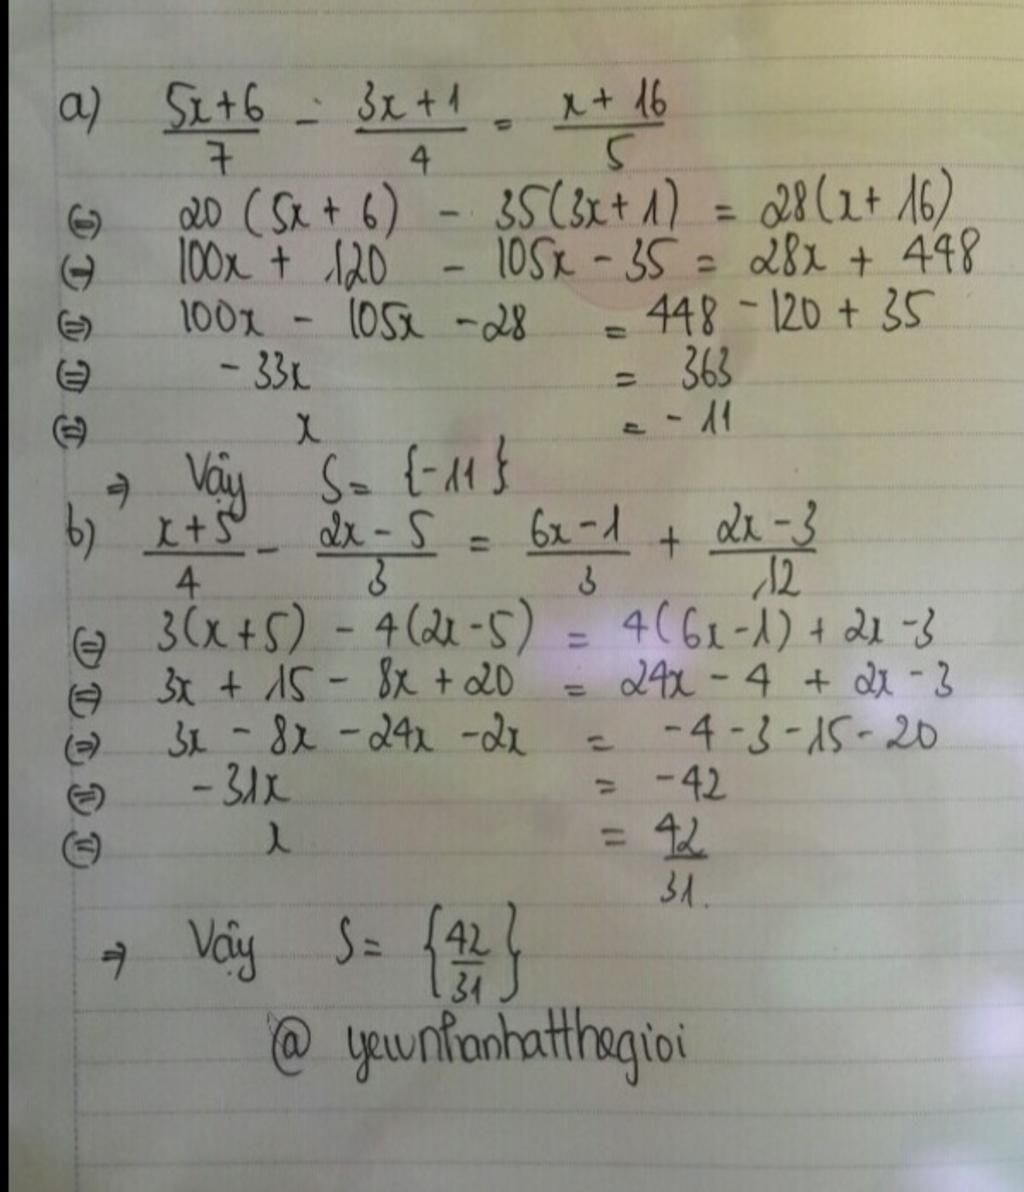 a) (5x+6)/7 - (3x+1)/4 = (x+16)/5
(=) 20(5x+6) - 35(3x+1) = 28(x+16)
(=) 100x + 120 - 105x - 35 = 28x + 448
(=) 100x - 105x - 28 = 448 - 120 + 35
(=) -33x = 363
(=) x = -11
⇒ Vậy S = {-11}
b) (x+5)/4 - (2x-5)/3 = (6x-1)/3 + (2x-3)/12
(=) 3(x+5) - 4(2x-5) = 4(6x-1) + 2x-3
(=) 3x + 15 - 8x + 20 = 24x - 4 + 2x - 3
(=) 3x - 8x - 24x - 2x = -4 - 3 - 15 - 20
(=) -31x = -42
(=) x = 42/31.
⇒ Vậy S = {42/31}
@ yewnhanhatthegioi